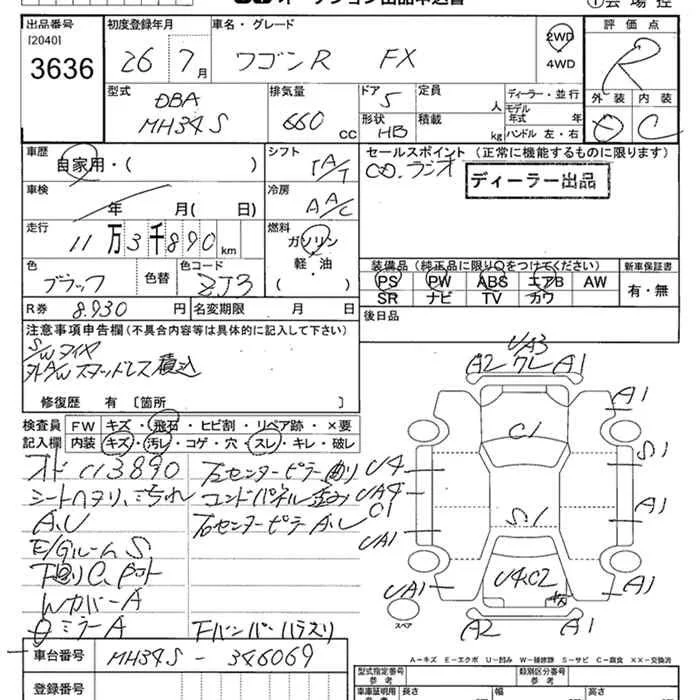 出品番号
[2040]
3636
初度登録年月
26年 7月
車名・グレード
ワゴンR FX
2WD
4WD
評価点
R
外装 内装
E C
型式
DBA
MH34S
排気量
660 cc
ドア 5
形状 HB
定員 人
積載 kg
ディーラー・並行
モデル年式 年
ハンドル 左・右
車歴
自家用・( )
シフト
IA/T
セールスポイント (正常に機能するものに限ります)
CD.ラジオ
ディーラー出品
車検
年 月( 日)
冷房
AA/C
走行
11万3千890 km
燃料
ガソリン
軽・油
( )
色
ブラック
色替
色コード
ZJ3
装備品(純正品に限り○をつけてください)
PS PW ABS エアB AW
SR ナビ TV カワ
新車保証書
有・無
R券 8.930 円
名変期限 月 日
後日品
注意事項申告欄(不具合内容等は具体的に記入して下さい)
S/Wタイヤ
外A/Wスタッドレス積込
修復歴 有 〔箇所 〕
検査員記入欄
FW キズ・飛石・ヒビ割・リペア跡・×要
内装 キズ・汚レ・コゲ・穴・スレ・キレ・破レ
オド113890
シートヘタリ、汚れ
A.U
E/GルームS
下回りC
WカバーA
ミラーA
左センターピラー曲り
コンドパネル歪み
右センターピラーA.U
Fバンパーハラズリ
UA3
A2 ワレ A1
A1
C1
U4
UA4
C1
S1
S.1
A1
UA1
UA1
U4.C2
A1
スペア
A2
A1
A-キズ E-エクボ U-凹み W-補修跡 S-サビ C-腐食 XX-交換済
車台番号 MH34S - 346069
登録番号
型式指定番号 参考
類別区分番号 参考
車庫証明用 参考
長さ
幅
高さ